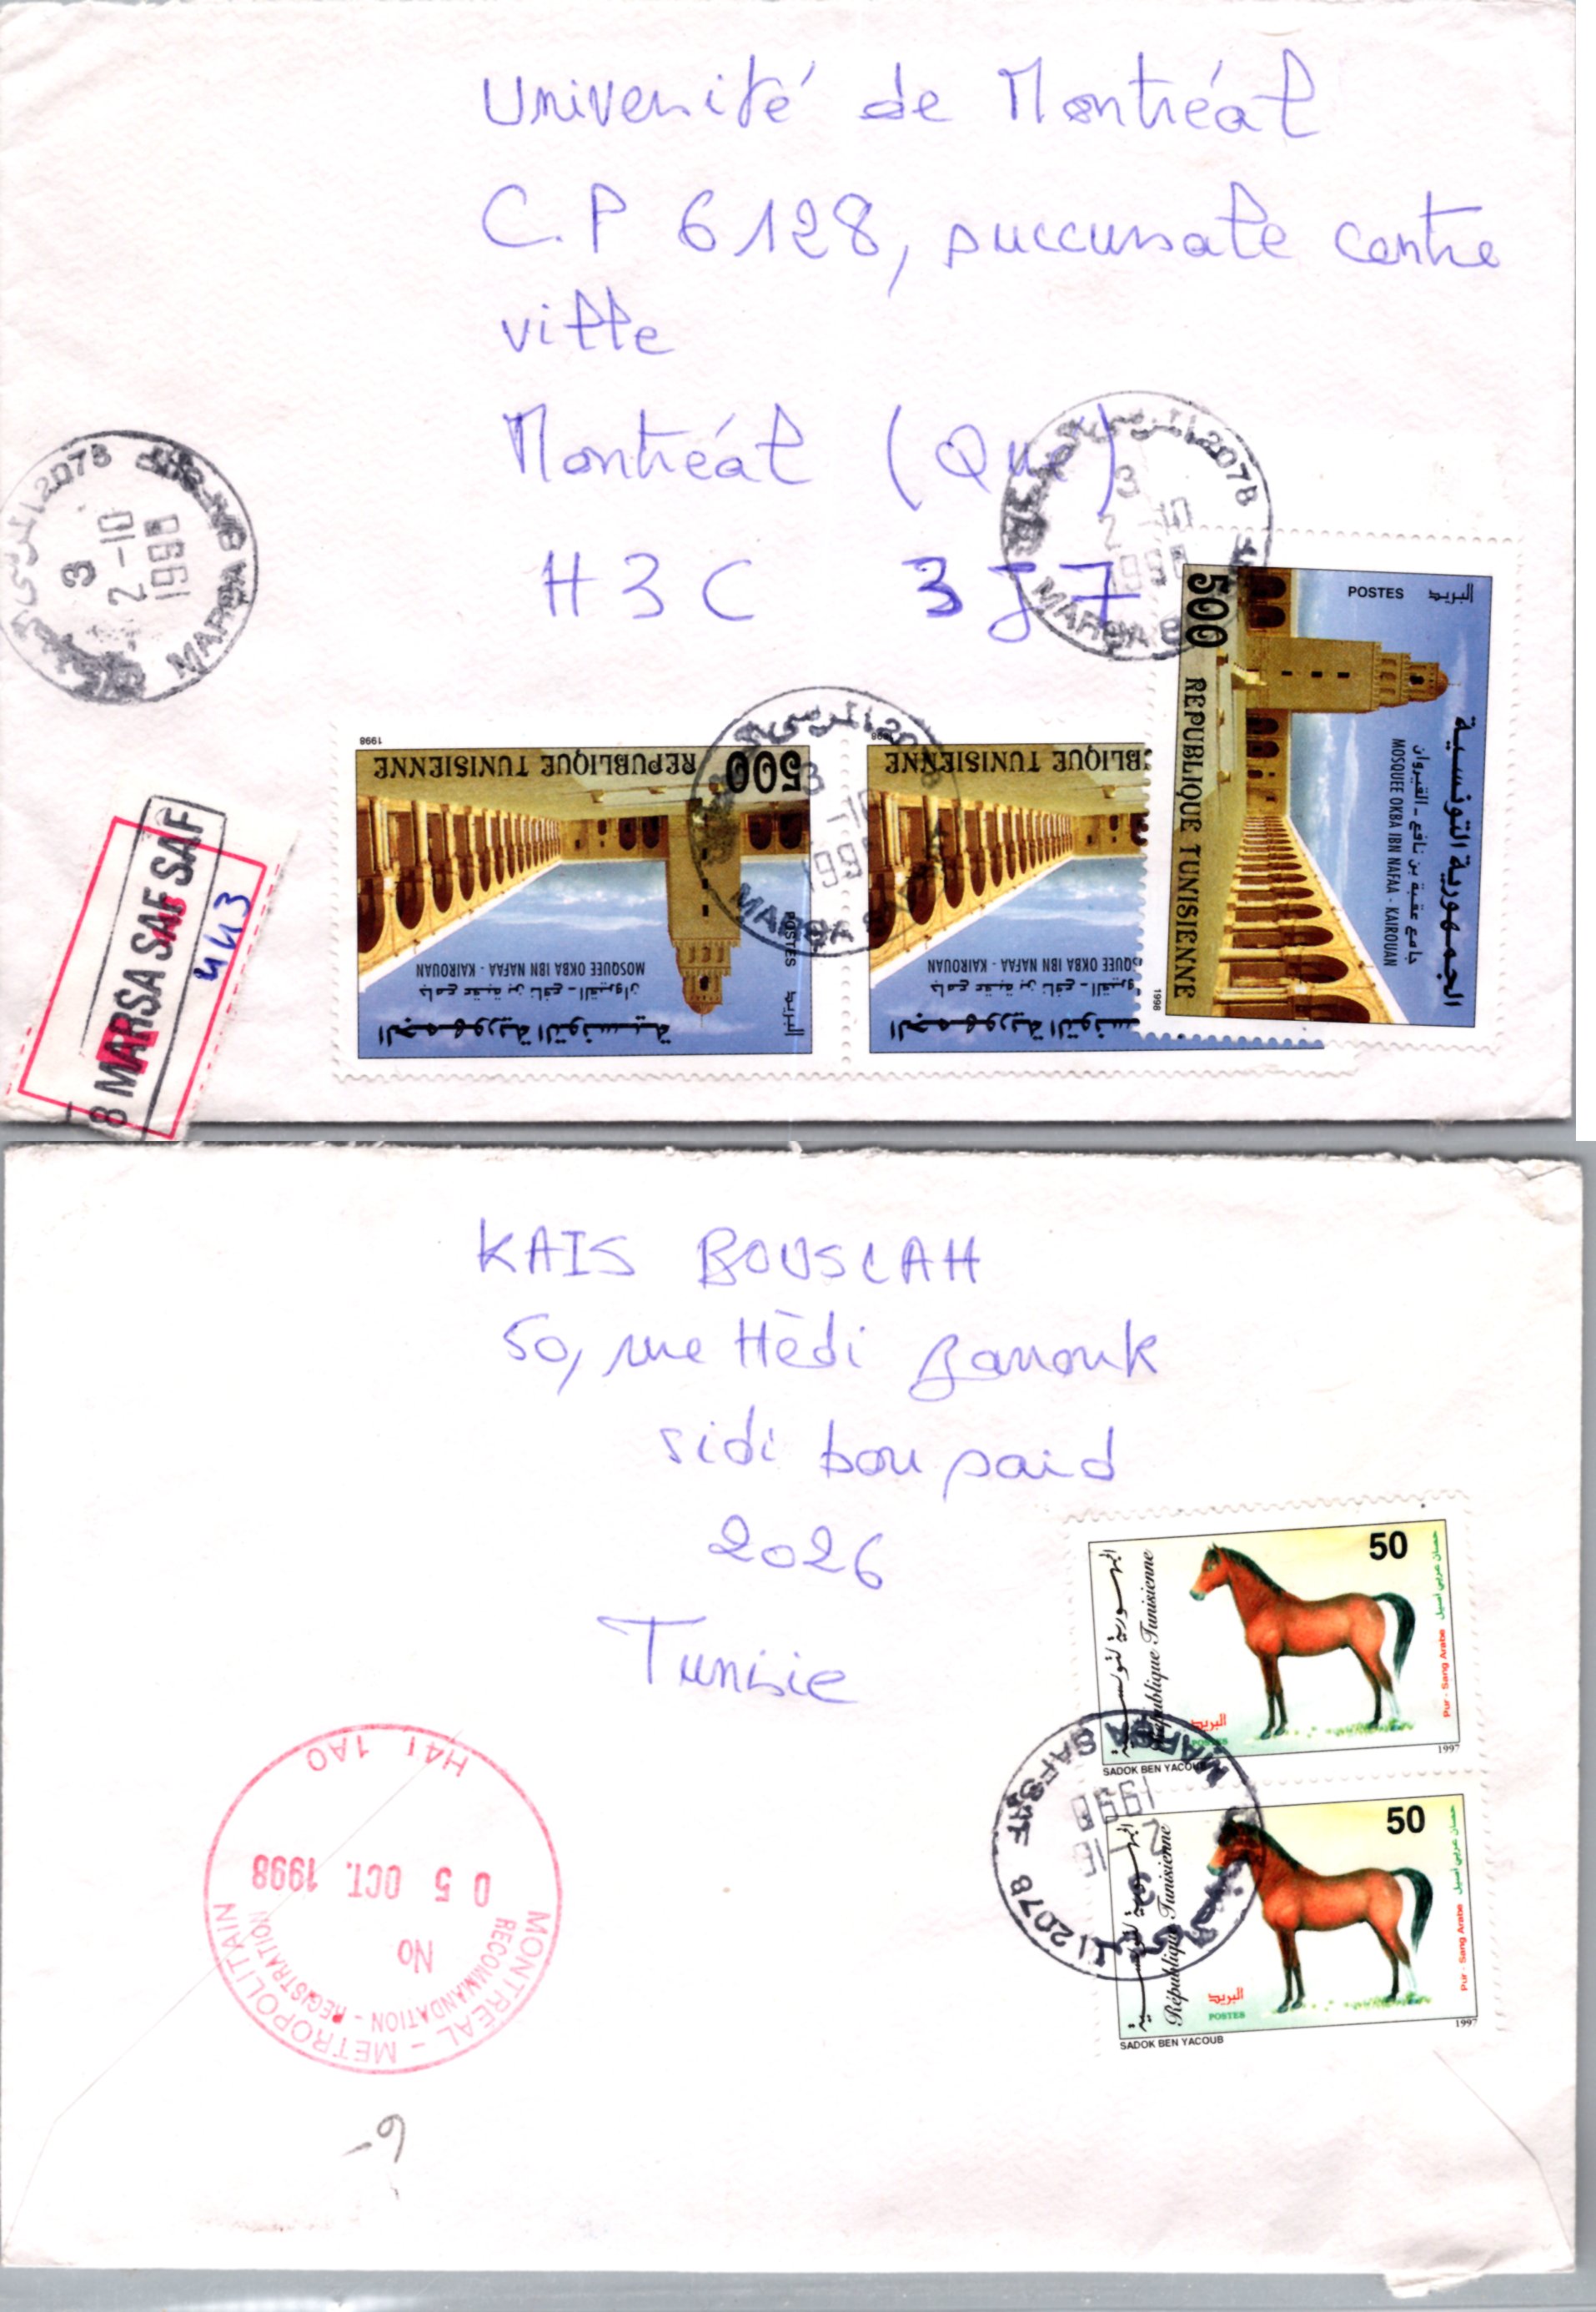 Université de Montréal
C.P 6128, succursale centre
ville
Montréal (Que)
H3C 3J7
2078
3
2-10
1998
MARSA
2078
3
2-10
1998
MARSA
500
POSTES البريد
REPUBLIQUE TUNISIENNE
الجمهورية التونسية
جامع عقبة بن نافع - القيروان
MOSQUEE OKBA IBN NAFAA - KAIROUAN
1998
1998
REPUBLIQUE TUNISIENNE 500
MOSQUEE OKBA IBN NAFAA - KAIROUAN
جامع عقبة بن نافع - القيروان
POSTES البريد
الجمهورية التونسية
3
MARSA
BLIQUE TUNISIENNE
MOSQUEE OKBA IBN NAFAA - KAIROUAN
MARSA SAF SAF
443
KAIS BOUSLAH
50, rue Hèdi Zarrouk
sidi bou said
2026
Tunisie
50
République Tunisienne
البريد
POSTES
حصان عربي أصيل
Pur - Sang Arabe
SADOK BEN YACOUB
1997
MARSA SAFSAF
1998
2078
50
République Tunisienne
البريد
POSTES
حصان عربي أصيل
Pur - Sang Arabe
SADOK BEN YACOUB
1997
MONTREAL - METROPOLITAIN
RECOMMANDATION - REGISTRATION
No
05 OCT. 1998
H4T 1A0